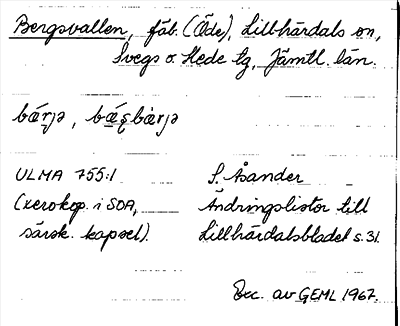 Bergsvallen, fäb. (Öde), Lillhärdals sn,
Svegs o. Hede tg, Jämtl. län.
bǽrjə, bǽʂbàrjə
ULMA 755:1
(xerokop. i SOA,
särsk. kapsel).
S. Åsander
Ändringslistor till
Lillhärdalsbladet s. 31.
Exc. av GEML 1967.